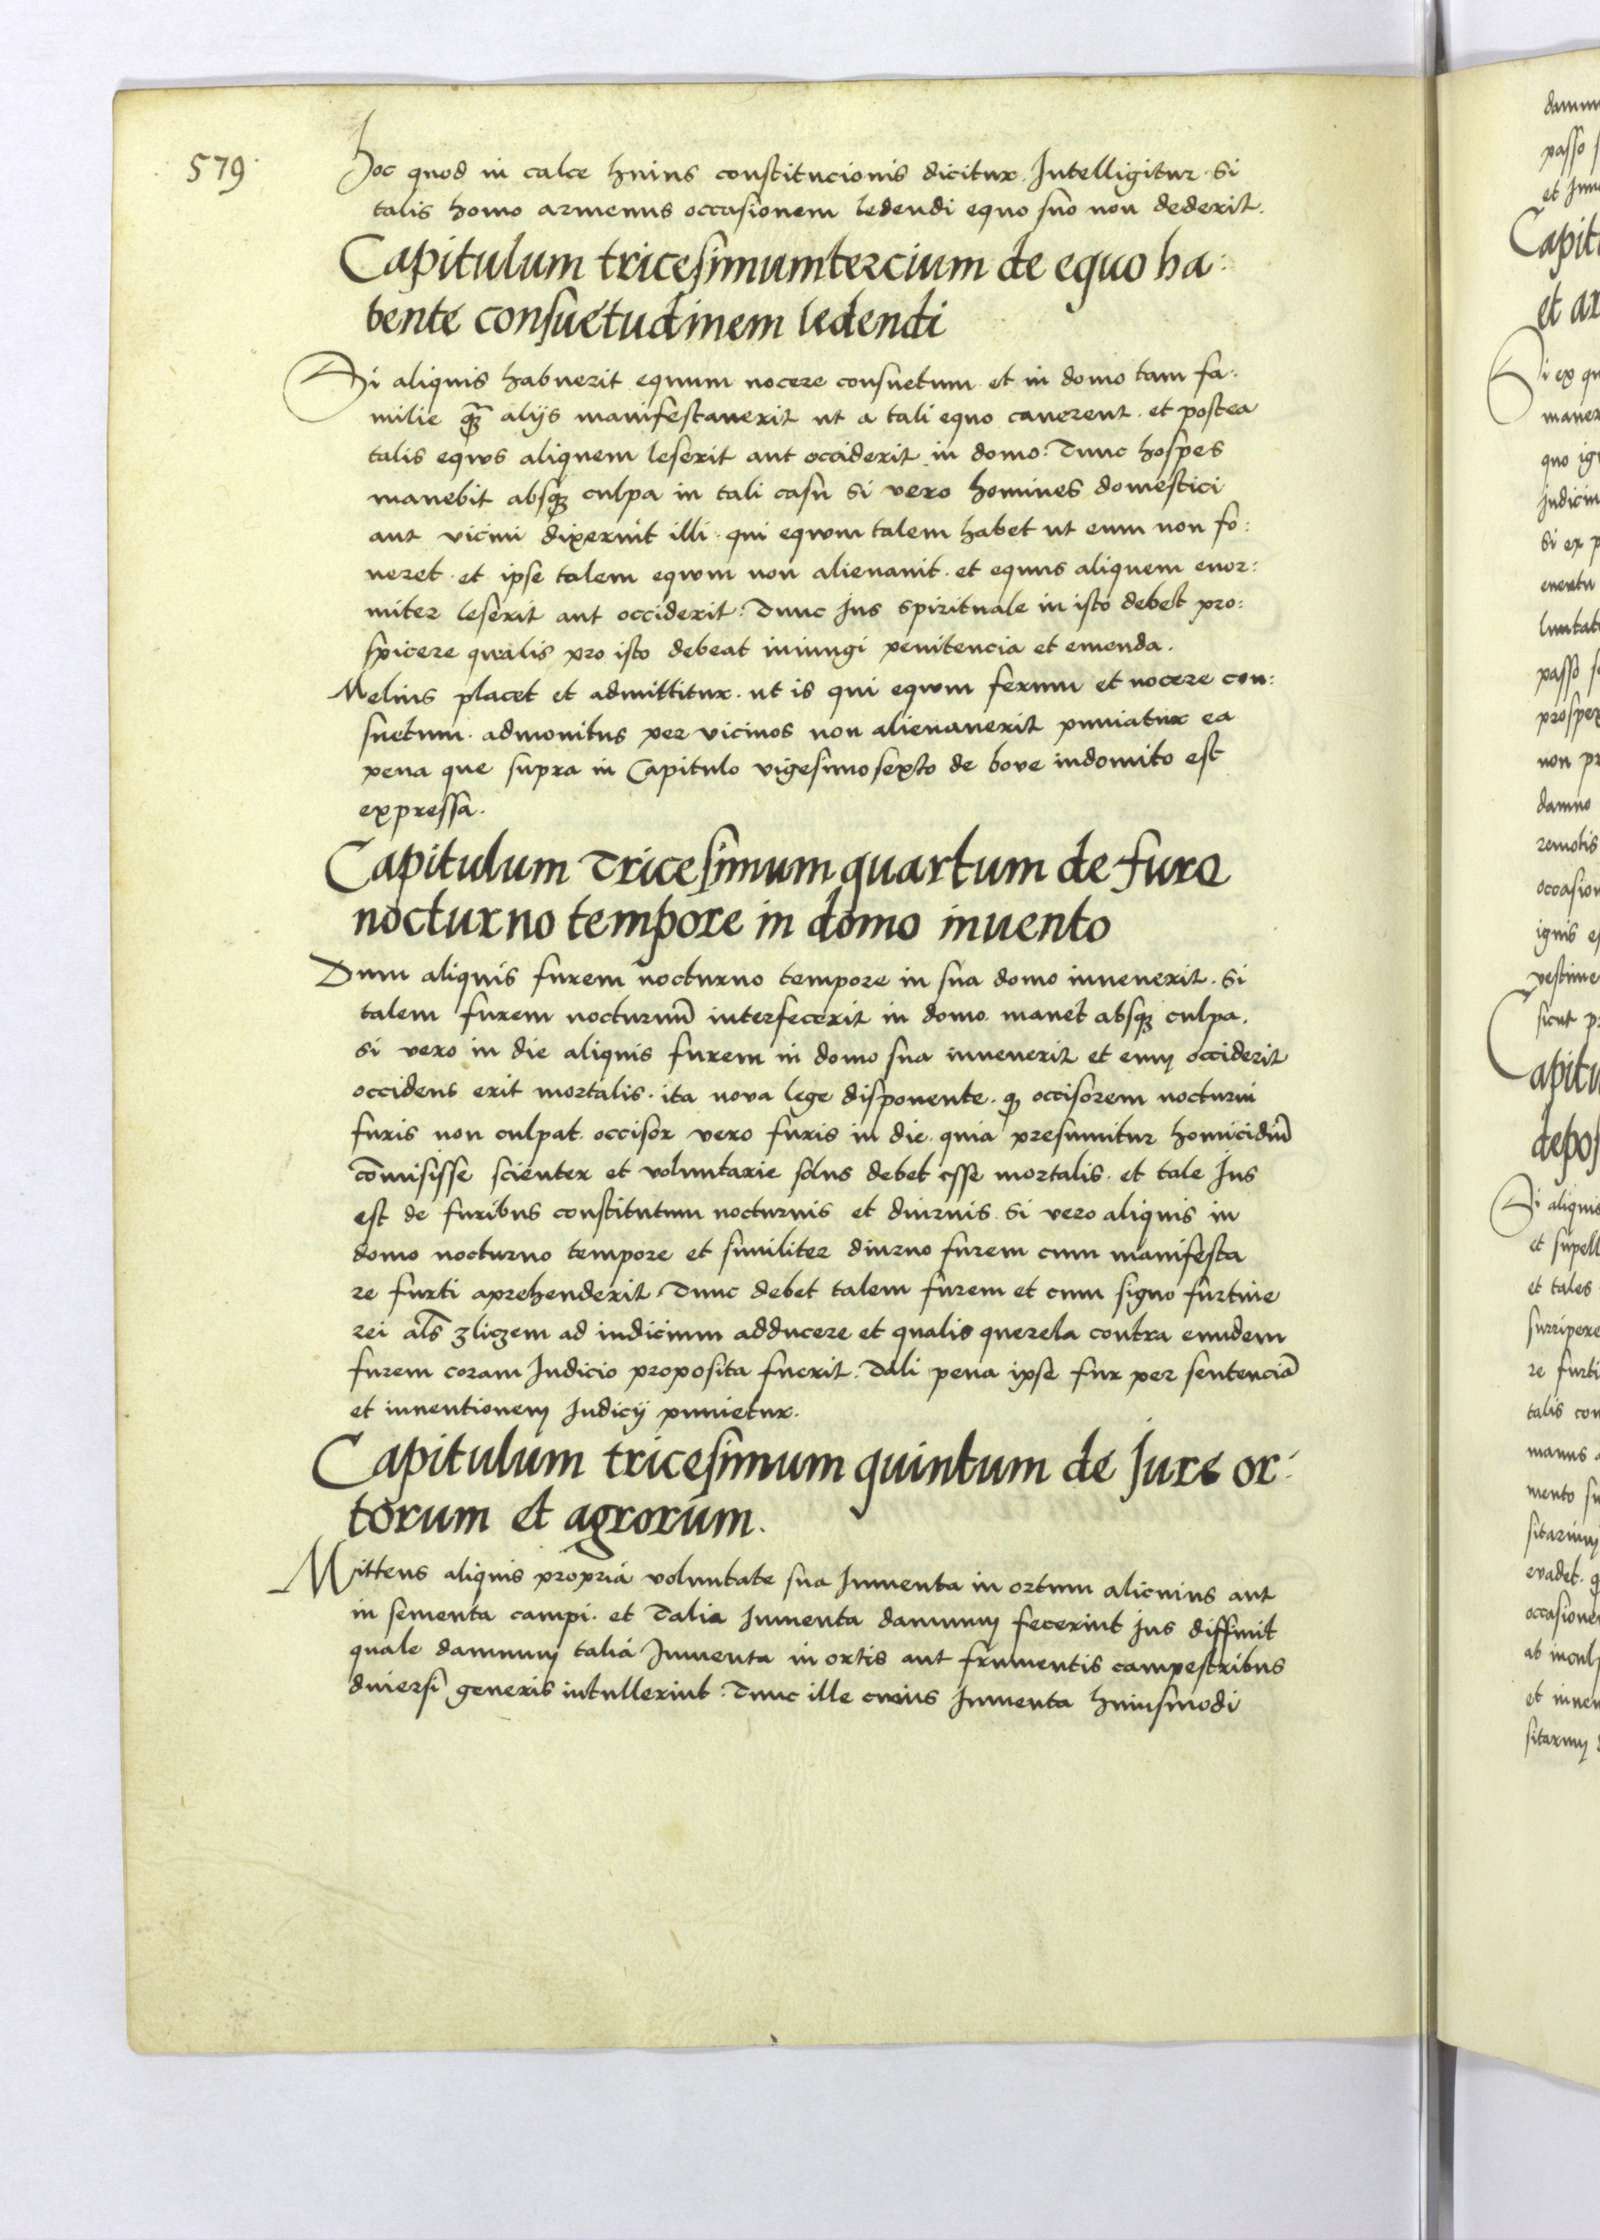 579
Hoc quod in calce huius constitucionis dicitur. Intelligitur. si
talis homo armenus occasionem ledendi equo suo non dederit.
Capitulum tricesimumtercium de equo ha:
bente consuetudinem ledendi
Si aliquis habuerit equum nocere consuetum et in domo tam fa:
milie qȝ alijs manifestauerit ut a tali equo cauerent. et postea
talis equus aliquem leserit aut occiderit in domo: Tunc hospes
manebit absqȝ culpa in tali casu si vero homines domestici
aut vicini dixerint illi qui equum talem habet ut eum non fo:
ueret. et ipse talem equum non alienauit. et equus aliquem enor:
miter leserit aut occiderit: Tunc Ius spirituale in isto debet pro:
spicere qualis pro isto debeat iniungi penitencia et emenda.
Melius placet et admittitur. ut is qui equum ferum et nocere con:
suetum. admonitus per vicinos non alienauerit puniatur ea
pena que supra in Capitulo vigesimosexto de boue indomito est
expressa.
Capitulum Tricesimum quartum de fure
nocturno tempore in domo inuento
Dum aliquis furem nocturno tempore in sua domo inuenerit. si
talem furem nocturnū interfecerit in domo manet absqȝ culpa.
si vero in die aliquis furem in domo sua inuenerit et eum occiderit
occidens erit mortalis. ita noua lege disponente. qȝ occisorem nocturni
furis non culpat. occisor vero furis in die. quia presumitur homicidiū
cōmisisse scienter et voluntarie solus debet esse mortalis. et tale Ius
est de furibus constitutum nocturnis et diurnis. si vero aliquis in
domo nocturno tempore et similiter diurno furem cum manifesta
re furti aprehenderit. Tunc debet talem furem et cum signo furtiue
rei als̄ zliczem ad iudicium adducere et qualis querela contra eundem
furem coram Iudicio proposita fuerit. Tali pena ipse fur per sentenciā
et inuentionem Iudicij punietur.
Capitulum tricesimum quintum de Iure or:
torum et agrorum.
Mittens aliquis propria voluntate sua Iumenta in ortum alicuius aut
in sementa campi. et Talia Iumenta damnum fecerint Ius diffinit
quale damnum talia Iumenta in ortis aut frumentis campestribus
diuersi generis intullerint: Tunc ille cuius Iumenta huiusmodi